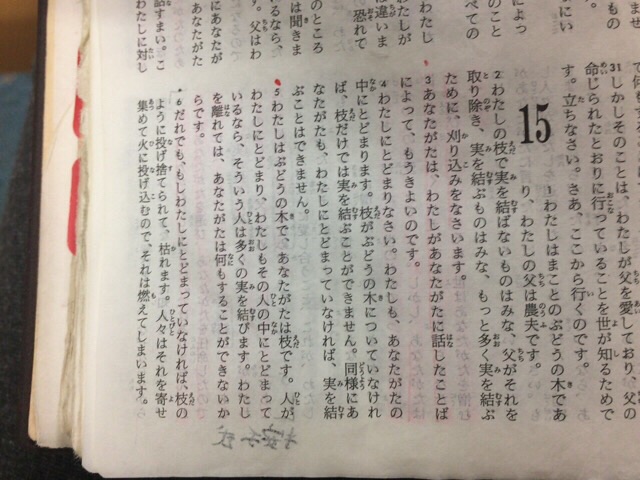 によっ
べての
わたし
たしが
は違いま
恐れて
のところ
は聞きま
るなら、
父はわ
にあなたが
あなたがた
話すまい。こ
わたしに対し
31しかしそのことは、わたしが父を愛しており、父の
命じられたとおりに行っていることを世が知るためで
す。立ちなさい。さあ、ここから行くのです。
15
1わたしはまことのぶどうの木であ
り、わたしの父は農夫です。
2わたしの枝で実を結ばないものはみな、父がそれを
取り除き、実を結ぶものはみな、もっと多く実を結ぶ
ために、刈り込みをなさいます。
3あなたがたは、わたしがあなたがたに話したことば
によって、もうきよいのです。
4わたしにとどまりなさい。わたしも、あなたがたの
中にとどまります。枝がぶどうの木についていなけれ
ば、枝だけでは実を結ぶことができません。同様にあ
なたがたも、わたしにとどまっていなければ、実を結
ぶことはできません。
5わたしはぶどうの木で、あなたがたは枝です。人が
わたしにとどまり、わたしもその人の中にとどまって
いるなら、そういう人は多くの実を結びます。わたし
を離れては、あなたがたは何もすることができないか
らです。
6だれでも、もしわたしにとどまっていなければ、枝の
ように投げ捨てられて、枯れます。人々はそれを寄せ
集めて火に投げ込むので、それは燃えてしまいます。